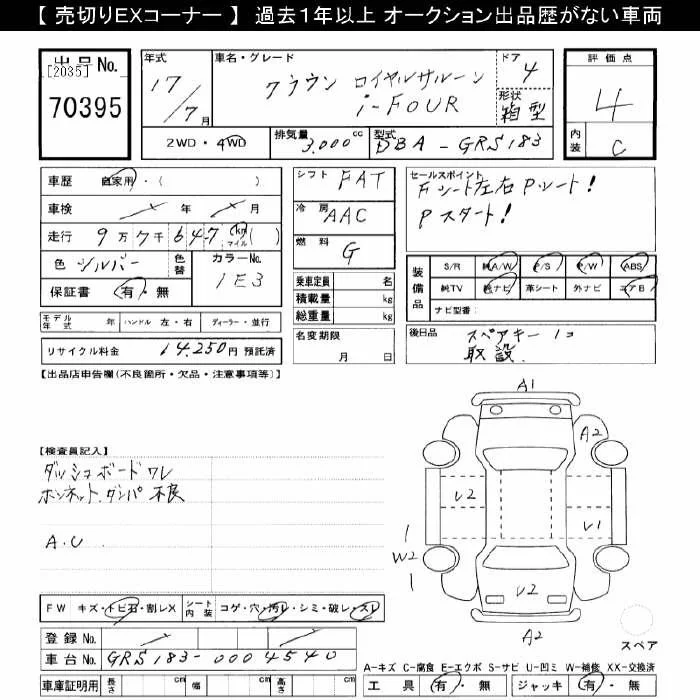 【 売切りEXコーナー 】 過去1年以上 オークション出品歴がない車両
出品No.
[2035]
70395
年式
17/7月
車名・グレード
クラウン ロイヤルサルーン
i-FOUR
ドア
4
形状
箱型
評価点
4
内装
C
2WD・4WD
排気量
3,000cc
型式
DBA-GRS183
車歴 自家用・( )
車検 年 月
走行 9万7千647km マイル( )
色 シルバー
色替
カラーNo.
1E3
保証書 有・無
シフト FAT
冷房 AAC
燃料 G
乗車定員 名
積載量 kg
総重量 kg
名変期限
月 日
セールスポイント
Fシート左右Pシート!
Pスタート!
装備品
S/R 純A/W P/S P/W ABS
純TV 純ナビ 革シート 外ナビ エアB
ナビ型番:
モデル年式 年 ハンドル 左・右 ディーラー・並行
リサイクル料金 14,250円 預託済
後日品 スペアキー1コ
取説
【出品店申告欄(不良箇所・欠品・注意事項等)】
【検査員記入】
ダッシュボードワレ
ボンネットダンパ不良
A.U
A1
A2
U2
U1
W2
U2
A2
スペア
FW キズ・トビ石・割レX
シート内装 コゲ・穴・汚レ・シミ・破レ・スレ
登録No.
車台No. GRS183-0004540
車庫証明用 長さ cm 幅 cm 高さ cm
A-キズ C-腐食 E-エクボ S-サビ U-凹ミ W-補修 XX-交換済
工具 有・無 ジャッキ 有・無